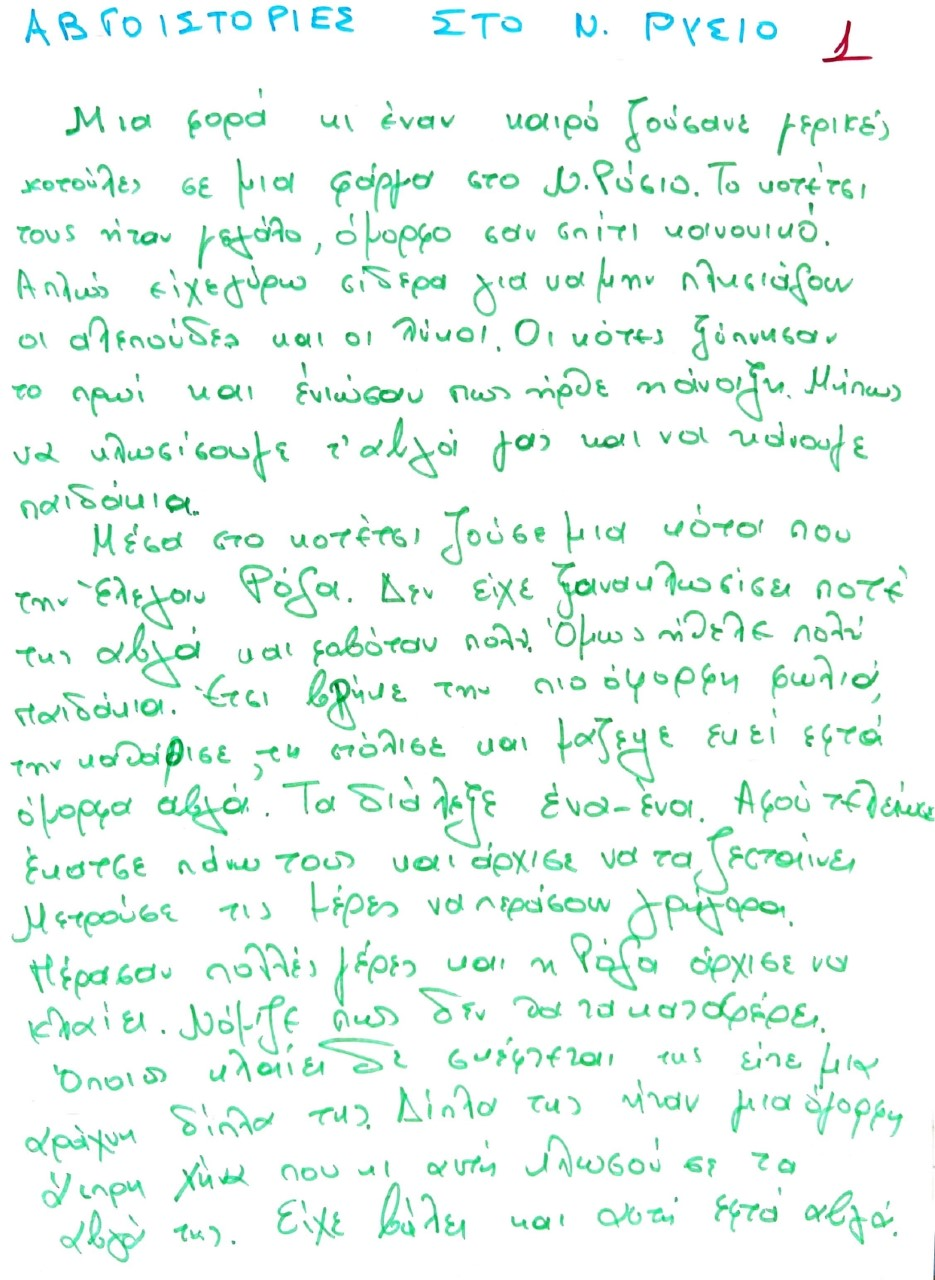 ΑΒΓΟΙΣΤΟΡΙΕΣ ΣΤΟ Ν. ΡΥΣΙΟ 1
Μια φορά κι έναν καιρό ζούσανε μερικές
κοτούλες σε μια φάρμα στο Ν. Ρύσιο. Το κοτέτσι
τους ήταν μεγάλο, όμορφο σαν σπίτι κανονικό.
Απλώς είχε γύρω σίδερα για να μην πλησιάζουν
οι αλεπούδες και οι λύκοι. Οι κότες ξύπνησαν
το πρωί και ένιωσαν πως ήρθε η άνοιξη. Μήπως
να κλωσίσουμε τ' αβγά μας και να κάνουμε
παιδάκια.
Μέσα στο κοτέτσι ζούσε μια κότα που
την έλεγαν Ρόζα. Δεν είχε ξανακλωσίσει ποτέ
της αβγά και φοβόταν πολύ. Όμως ήθελε πολύ
παιδάκια. Έτσι βρήκε την πιο όμορφη φωλιά,
την καθάρισε, τη στόλισε και μάζεψε εκεί εφτά
όμορφα αβγά. Τα διάλεξε ένα-ένα. Αφού τέλειωσε
έκατσε πάνω τους και άρχισε να τα ζεσταίνει
Μετρούσε τις μέρες να περάσουν γρήγορα.
Πέρασαν πολλές μέρες και η Ρόζα άρχισε να
κλαίει. Νόμιζε πως δεν θα τα καταφέρει.
Όποιος κλαίει δε σκέφτεται της είπε μια
αράχνη δίπλα της. Δίπλα της ήταν μια όμορφη
άσπρη χήνα που κι αυτή κλωσούσε τα
αβγά της. Είχε βάλει και αυτή εφτά αβγά.